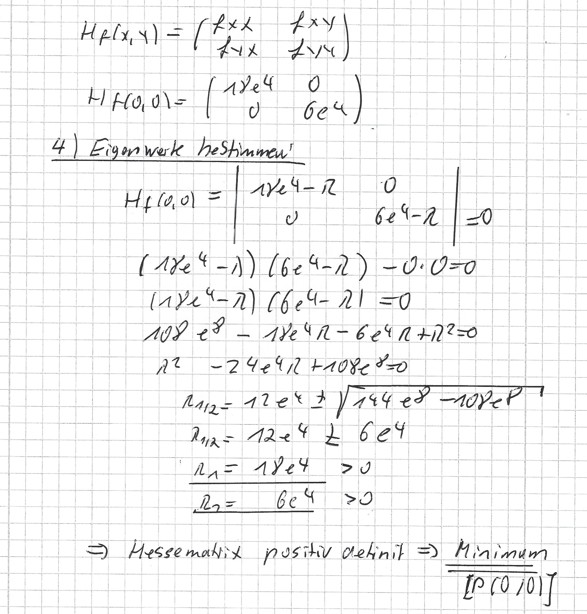 Hf(x,y) = (fxx fxy
fyx fyy)
Hf(0,0) = (18e⁴ 0
0 6e⁴)
4) Eigenwerte bestimmen:
Hf(0,0) = | 18e⁴-λ 0
0 6e⁴-λ | = 0
(18e⁴-λ) (6e⁴-λ) - 0·0=0
(18e⁴-λ) (6e⁴-λ) = 0
108 e⁸ - 18e⁴λ - 6e⁴λ + λ²=0
λ² - 24e⁴λ + 108e⁸=0
λ1/2 = 12e⁴ ± √144 e⁸ - 108e⁸
λ1/2 = 12e⁴ ± 6e⁴
λ1 = 18e⁴ > 0
λ2 = 6e⁴ > 0
⇒ Hessematrix positiv definit ⇒ Minimum
[P(0/0)]